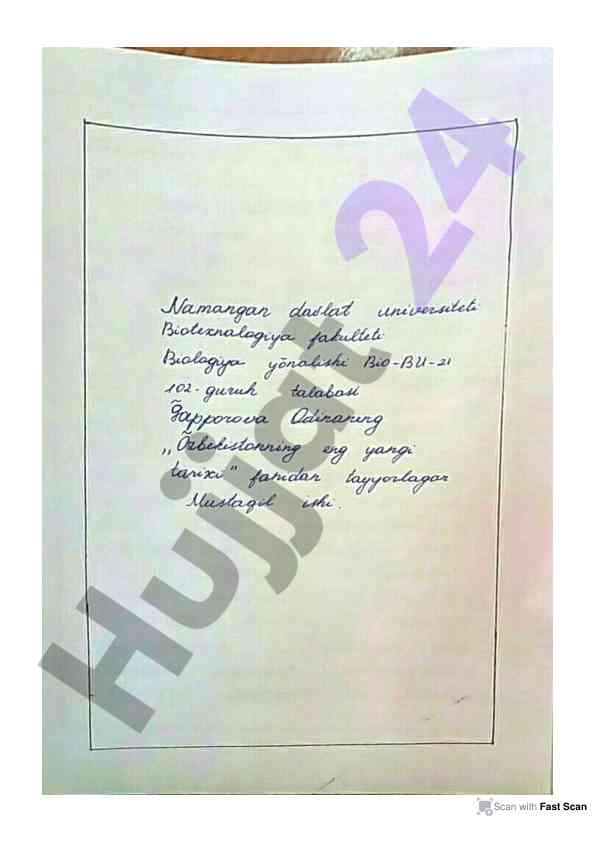 Namangan davlat universiteti
Biotexnalogiya fakulteti
Biologiya yõnalishi Bio-BU-21
102-guruh talabasi
G̃apporova Odinaning
„Õzbekistonning eng yangi
tarixi" fanidan tayyorlagan
Mustaqil ishi.
Hujjat 24
Scan with Fast Scan